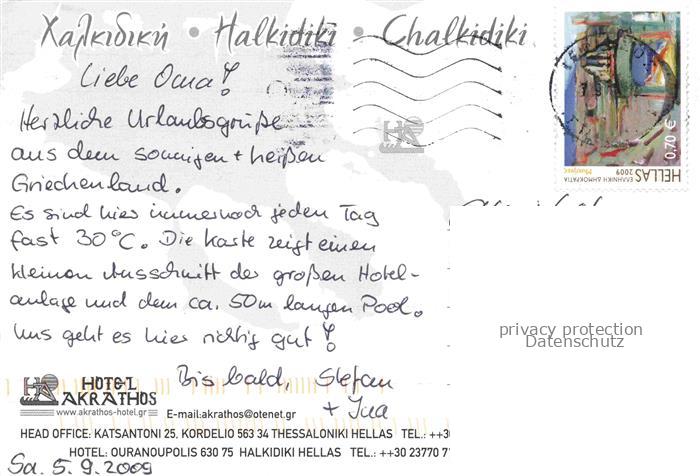 Χαλκιδική • Halkidiki • Chalkidiki
Liebe Oma!
Herzliche Urlaubsgrüße
aus dem sonnigen + heißen
Griechenland.
Es sind hier immernoch jeden Tag
fast 30°C. Die Karte zeigt einen
kleinen Ausschnitt der großen Hotel-
anlage und dem ca. 50m langen Pool.
Uns geht es hier richtig gut!
Bis bald, Stefan
+ Ina
HOTEL
AKRATHOS
www.akrathos-hotel.gr
E-mail:akrathos@otenet.gr
HEAD OFFICE: KATSANTONI 25, KORDELIO 563 34 THESSALONIKI HELLAS TEL.: ++3
HOTEL: OURANOUPOLIS 630 75 HALKIDIKI HELLAS TEL.: ++30 23770 7
Sa. 5.9.2009
0,70 €
HELLAS
ΕΛΛΗΝΙΚΗ ΔΗΜΟΚΡΑΤΙΑ
2009
privacy protection
Datenschutz